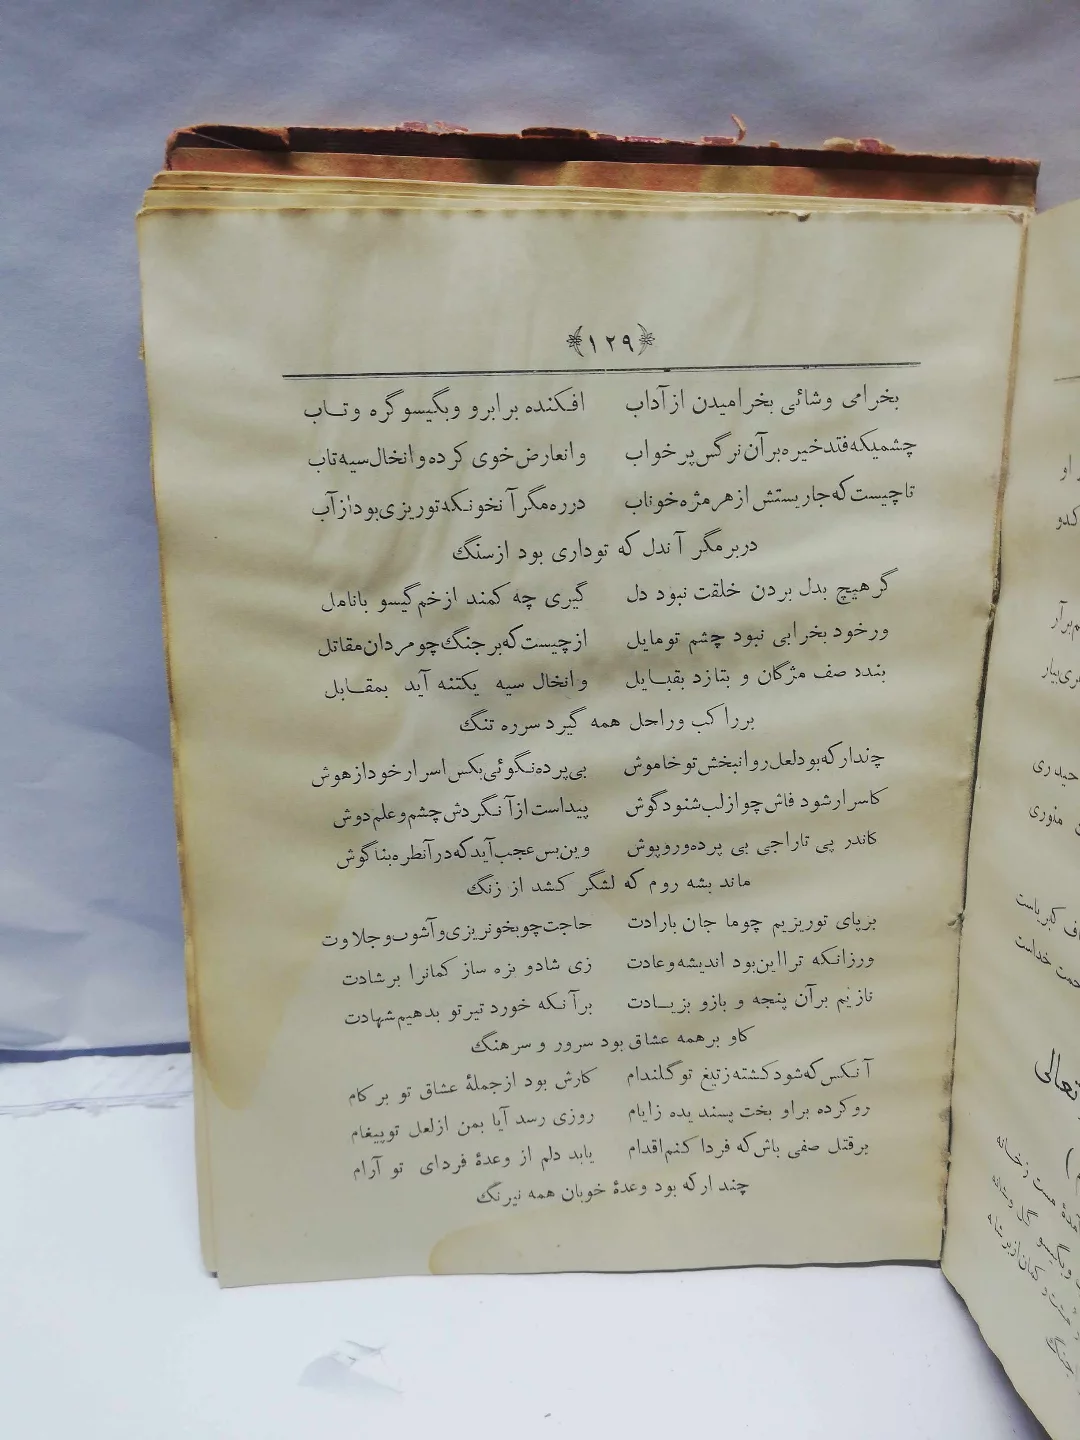 ﴿۱۲۹﴾
بخرامی وشائی بخرامیدن ازآداب افکنده برابرو وبگیسوگره وتاب
چشمیکه‌فتدخیره‌برآن‌نرگس‌پرخواب وانعارض‌خوی کرده‌وانخال‌سیه‌تاب
تاچیست‌که‌جاریستش ازهرمژه‌خوناب درره‌مگرآنخونکه‌توریزی‌بودازآب
دربرمگر آندل که توداری بود ازسنگ
گرهیچ بدل بردن خلقت نبود دل گیری چه کمند ازخم‌گیسو بانامل
ورخود بخرابی نبود چشم تومایل ازچیست‌که‌برجنگ‌چومردان‌مقاتل
بندد صف مژگان و بتازد بقبایل وانخال سیه یکتنه آید بمقابل
برراکب وراحل همه گیرد سرره تنگ
چندارکه‌بودلعل‌روانبخش‌توخاموش بی‌پرده‌نگوئی‌بکس‌اسرارخودازهوش
کاسرارشود فاش‌چوازلب‌شنودگوش پیداست‌ازآنگردش‌چشم‌وعلم‌دوش
کاندر پی تاراجی بی پرده‌وروپوش وین‌بس‌عجب‌آیدکه‌درآنطره‌بناگوش
ماند بشه روم که لشگر کشد از زنگ
برپای توریزیم چوما جان بارادت حاجت‌چوبخونریزی‌وآشوب‌وجلاوت
ورزانکه تراین‌بود اندیشه‌وعادت زی شادو بزه ساز کمانرا برشادت
نازیم برآن پنجه و بازو بزیادت برآنکه خورد تیرتو بدهیم‌شهادت
کاو برهمه عشاق بود سرور و سرهنگ
آنکس‌که‌شودکشته‌زتیغ توگلندام کارش بود ازجملهٔ عشاق تو برکام
روکرده براو بخت پسندیده زایام روزی رسد آیا بمن ازلعل توپیغام
برقتل صفی باش‌که فردا کنم‌اقدام یابد دلم از وعدهٔ فردای تو آرام
چند ارکه بود وعدهٔ خوبان همه نیرنگ
حیدری
کبریاست
تعالی